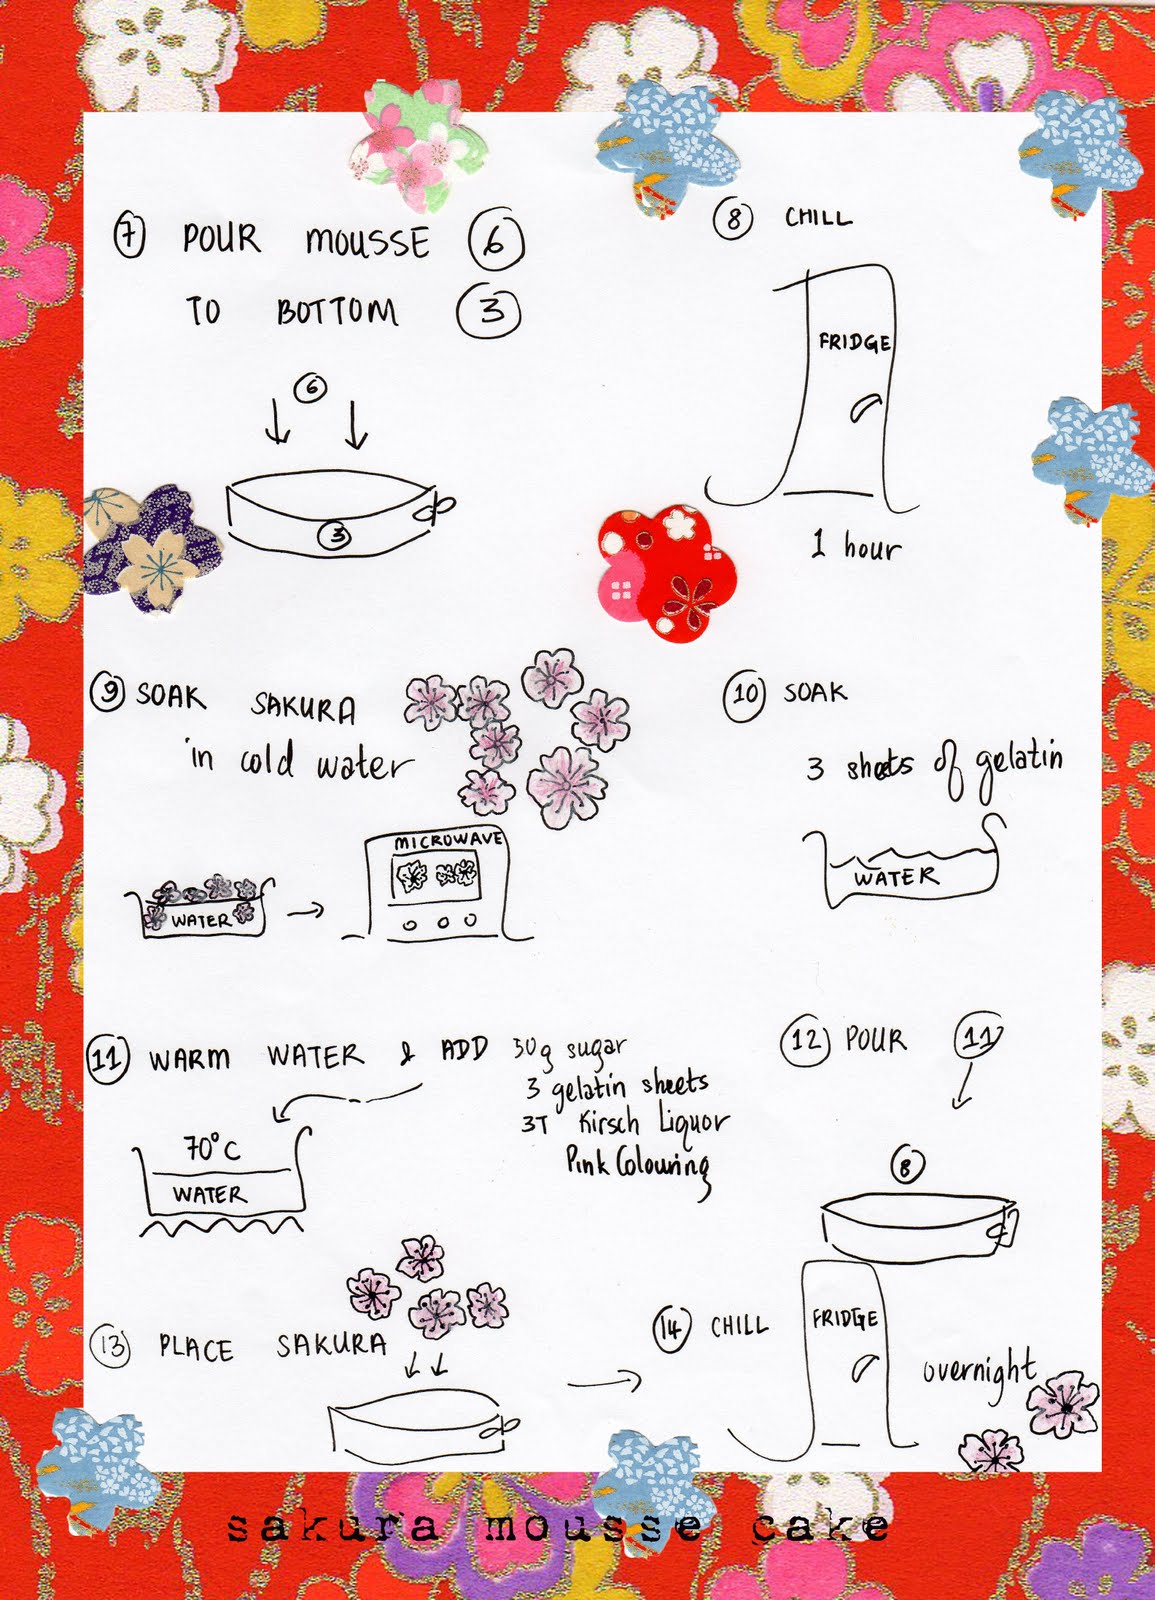 7 POUR MOUSSE 6
TO BOTTOM 3
6
3
8 CHILL
FRIDGE
1 hour
9 SOAK SAKURA
in cold water
WATER
MICROWAVE
10 SOAK
3 sheets of gelatin
WATER
11 WARM WATER & ADD 30g sugar
3 gelatin sheets
3T Kirsch Liquor
Pink Colouring
70°C
WATER
12 POUR 11
8
13 PLACE SAKURA
14 CHILL
FRIDGE
overnight
sakura mousse cake